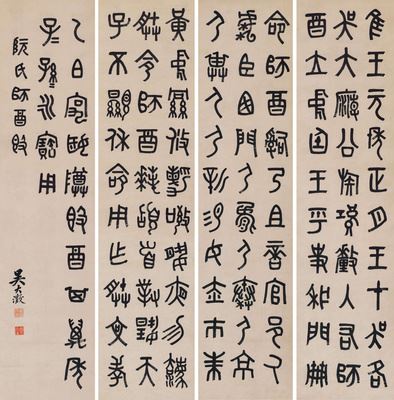 隹王元年正月王才吳各
吳大廟公族釐入右師
酉立中廷王乎史冊
命師酉嗣乃且啻官邑人
虎臣西門尸尸秦尸京
尸尸新易女赤巿朱
黃中攸勒敬夙夜勿灋
朕令師酉拜稽首對揚天
子不顯休命用乍朕文考
乙白姬尊敦酉其萬年
子孫永寶用
阮氏師酉敦
吳大澂